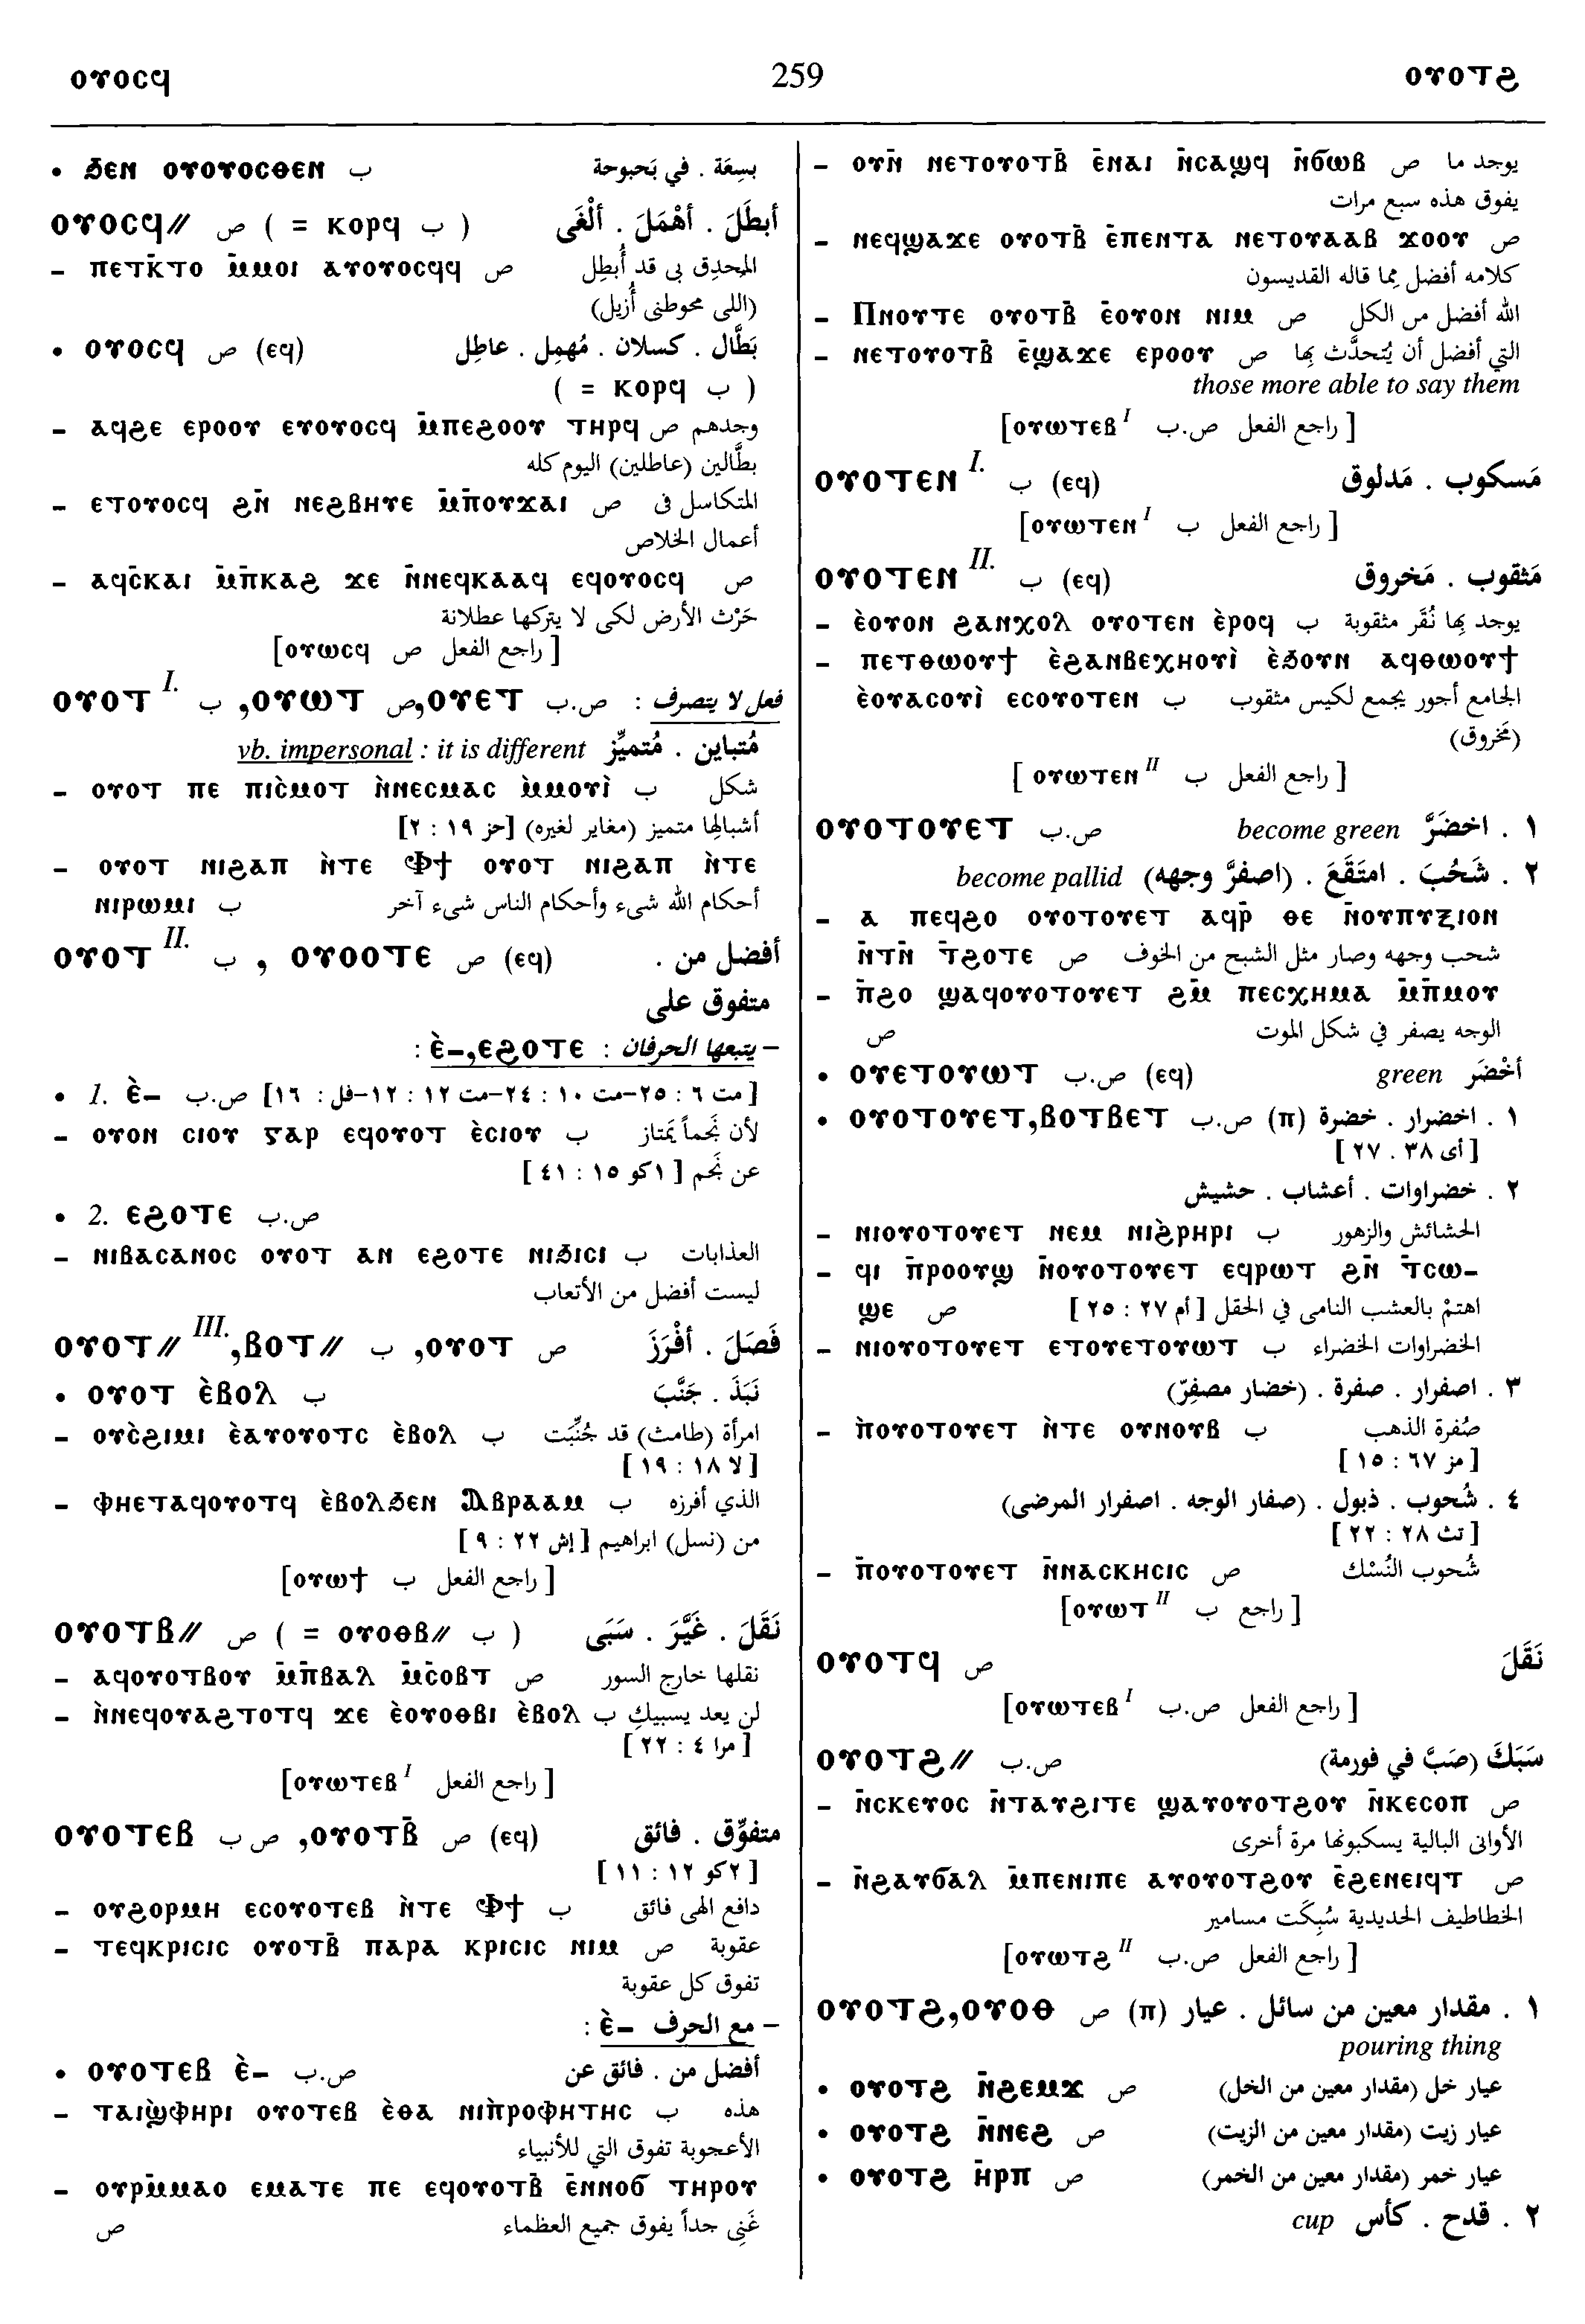 ⲟⲩⲟⲥϥ 259 ⲟⲩⲟⲧϩ
• ϧⲉⲛ ⲟⲩⲟⲩⲟⲥⲑⲉⲛ ب بسِعَة . في بَحبوحة
ⲟⲩⲟⲥϥ// ص ( ب ⲕⲟⲣϥ = ) أبطَلَ . أهْمَلَ . ألْغَى
– ⲡⲉⲧⲕ̄ⲧⲟ ⲙ̄ⲙⲟⲓ ⲁⲩⲟⲩⲟⲥϥϥ ص المحدِق بى قد أُبطِل
(اللى محوطنى أُزيل)
• ⲟⲩⲟⲥϥ ص (ⲉϥ) بَطَّال . كسلان . مُهمِل . عاطِل
( ب ⲕⲟⲣϥ = )
– ⲁϥϩⲉ ⲉⲣⲟⲟⲩ ⲉⲩⲟⲩⲟⲥϥ ⲙ̄ⲡⲉϩⲟⲟⲩ ⲧⲏⲣϥ ص وجدهم
بطَّالين (عاطلين) اليوم كله
– ⲉⲧⲟⲩⲟⲥϥ ϩⲛ̄ ⲛⲉϩⲃⲏⲩⲉ ⲙ̄ⲡⲟⲩϫⲁⲓ ص المتكاسل فى
أعمال الخلاص
– ⲁϥⲥ̄ⲕⲁⲓ ⲙ̄ⲡⲕⲁϩ ϫⲉ ⲛ̄ⲛⲉϥⲕⲁⲁϥ ⲉϥⲟⲩⲟⲥϥ ص
حَرْث الأرض لكى لا يتركها عطلانة
[ راجع الفعل ص ⲟⲩⲱⲥϥ]
ⲟⲩⲟⲧ I. ب ,ⲟⲩⲱⲧ ص,ⲟⲩⲉⲧ ص.ب : فعل لا يتصرف
vb. impersonal : it is different مُتباين . مُتميِّز
– ⲟⲩⲟⲧ ⲡⲉ ⲡⲓⲥ̀ⲙⲟⲧ ⲛ̀ⲛⲉⲥⲙⲁⲥ ⲙ̀ⲙⲟⲩⲓ̀ ب شكل
أشبالها متميز (مغاير لغيره) [حز ١٩ : ٢]
– ⲟⲩⲟⲧ ⲛⲓϩⲁⲡ ⲛ̀ⲧⲉ Ⲫϯ ⲟⲩⲟⲧ ⲛⲓϩⲁⲡ ⲛ̀ⲧⲉ
ⲛⲓⲣⲱⲙⲓ ب أحكام الله شىء وأحكام الناس شىء آخر
ⲟⲩⲟⲧ II. ب , ⲟⲩⲟⲟⲧⲉ ص (ⲉϥ) أفضل من .
متفوق على
– يتبعها الحرفان : ⲉϩⲟⲧⲉ,–ⲉ̀ :
• 1. ⲉ̀– ص.ب [مت ٦ : ٢٥–مت ١٠ : ٢٤–مت ١٢ : ١٢–فل : ١٦]
– ⲟⲩⲟⲛ ⲥⲓⲟⲩ ⲅⲁⲣ ⲉϥⲟⲩⲟⲧ ⲉ̀ⲥⲓⲟⲩ ب لأن نَجماً يمتاز
عن نَجم [١كو ١٥ : ٤١]
• 2. ⲉϩⲟⲧⲉ ص.ب
– ⲛⲓⲃⲁⲥⲁⲛⲟⲥ ⲟⲩⲟⲧ ⲁⲛ ⲉϩⲟⲧⲉ ⲛⲓϧⲓⲥⲓ ب العذابات
ليست أفضل من الأتعاب
ⲟⲩⲟⲧ// III. ,ⲃⲟⲧ// ب ,ⲟⲩⲟⲧ ص فَصَلَ . أفْرَزَ
• ⲟⲩⲟⲧ ⲉ̀ⲃⲟⲗ ب نَبَذَ . جَنَّبَ
– ⲟⲩⲥ̀ϩⲓⲙⲓ ⲉ̀ⲁⲩⲟⲩⲟⲧⲥ ⲉ̀ⲃⲟⲗ ب امرأة (طامث) قد جُنِّبَت
[لا ١٨ : ١٩]
– ⲫⲏⲉⲧⲁϥⲟⲩⲟⲧϥ ⲉ̀ⲃⲟⲗϧⲉⲛ Ⲁⲃⲣⲁⲁⲙ ب الذي أفرزه
من (نسل) ابراهيم [إش ٢٢ : ٩]
[ راجع الفعل ب ⲟⲩⲱϯ]
ⲟⲩⲟⲧⲃ// ص ( ب ⲟⲩⲟⲑⲃ// = ) نَقَلَ . غَيَّرَ . سَبَى
– ⲁϥⲟⲩⲟⲧⲃⲟⲩ ⲙ̄ⲡⲃⲁⲗ ⲙ̄ⲥⲟⲃⲧ ص نقلها خارج السور
– ⲛ̀ⲛⲉϥⲟⲩⲁϩⲧⲟⲧϥ ϫⲉ ⲉ̀ⲟⲩⲟⲑⲃⲓ ⲉ̀ⲃⲟⲗ ب لن يعد يسبيكِ
[مرا ٤ : ٢٢]
[ راجع الفعل ⲟⲩⲱⲧⲉⲃ I]
ⲟⲩⲟⲧⲉⲃ ص ب ,ⲟⲩⲟⲧⲃ̄ ص (ⲉϥ) متفوِّق . فائق
[٢كو ١٢ : ١١]
– ⲟⲩϩⲟⲣⲙⲏ ⲉⲥⲟⲩⲟⲧⲉⲃ ⲛ̀ⲧⲉ Ⲫϯ ب دافع الهى فائق
– ⲧⲉϥⲕⲣⲓⲥⲓⲥ ⲟⲩⲟⲧⲃ̄ ⲡⲁⲣⲁ ⲕⲣⲓⲥⲓⲥ ⲛⲓⲙ ص عقوبة
تفوق كل عقوبة
– مع الحرف –ⲉ̀ :
• ⲟⲩⲟⲧⲉⲃ ⲉ̀– ص.ب أفضل من . فائق عن
– ⲧⲁⲓϣ̀ⲫⲏⲣⲓ ⲟⲩⲟⲧⲉⲃ ⲉ̀ⲑⲁ ⲛⲓⲡ̀ⲣⲟⲫⲏⲧⲏⲥ ب هذه
الأعجوبة تفوق التي للأنبياء
– ⲟⲩⲣⲙ̄ⲙⲁⲟ ⲉⲙⲁⲧⲉ ⲡⲉ ⲉϥⲟⲩⲟⲧⲃ̄ ⲉ̄ⲛⲛⲟϭ ⲧⲏⲣⲟⲩ
ص غَنِى جداً يفوق جميع العظماء
– ⲟⲩⲛ̄ ⲛⲉⲧⲟⲩⲟⲧⲃ̄ ⲉ̄ⲛⲁⲓ ⲛ̄ⲥⲁϣϥ ⲛ̄ϭⲱⲃ ص يوجد ما
يفوق هذه سبع مرات
– ⲛⲉϥϣⲁϫⲉ ⲟⲩⲟⲧⲃ̄ ⲉ̄ⲡⲉⲛⲧⲁ ⲛⲉⲧⲟⲩⲁⲁⲃ ϫⲟⲟⲩ ص
كلامه أفضل مما قاله القديسون
– Ⲡⲛⲟⲩⲧⲉ ⲟⲩⲟⲧⲃ̄ ⲉ̄ⲟⲩⲟⲛ ⲛⲓⲙ ص الله أفضل من الكل
– ⲛⲉⲧⲟⲩⲟⲧⲃ̄ ⲉ̄ϣⲁϫⲉ ⲉⲣⲟⲟⲩ ص التي أفضل أن يُتحدَّث بها
those more able to say them
[ راجع الفعل ص.ب ⲟⲩⲱⲧⲉⲃ I]
ⲟⲩⲟⲧⲉⲛ I. ب (ⲉϥ) مَسكوب . مَدلوق
[ راجع الفعل ب ⲟⲩⲱⲧⲉⲛ I]
ⲟⲩⲟⲧⲉⲛ II. ب (ⲉϥ) مَثقوب . مَخروق
– ⲉ̀ⲟⲩⲟⲛ ϩⲁⲛⲭⲟⲗ ⲟⲩⲟⲧⲉⲛ ⲉ̀ⲣⲟϥ ب يوجد بها نُقَر مثقوبة
– ⲡⲉⲧⲑⲱⲟⲩϯ ⲉ̀ϩⲁⲛⲃⲉⲭⲛⲟⲩⲓ̀ ⲉ̀ϧⲟⲩⲛ ⲁϥⲑⲱⲟⲩϯ
ⲉ̀ⲟⲩⲁⲥⲟⲩⲓ̀ ⲉⲥⲟⲩⲟⲧⲉⲛ ب الجامع أجور يجمع لكيس مثقوب
(مخروق)
[ راجع الفعل ب ⲟⲩⲱⲧⲉⲛ II ]
ⲟⲩⲟⲧⲟⲩⲉⲧ ص.ب become green ١ . اخضَرَّ
become pallid (اصفرَّ وجهه) . ٢ . شَحُبَ . امتَقَعَ
– ⲁ ⲡⲉϥϩⲟ ⲟⲩⲟⲧⲟⲩⲉⲧ ⲁϥⲣ̄ ⲑⲉ ⲛ̄ⲟⲩⲡⲩⲝⲓⲟⲛ
ⲛ̄ⲧⲛ̄ ⲧ̄ϩⲟⲧⲉ ص شحب وجهه وصار مثل الشبح من الخوف
– ⲡ̄ϩⲟ ϣⲁϥⲟⲩⲟⲧⲟⲩⲉⲧ ϩⲙ̄ ⲡⲉⲥⲭⲏⲙⲁ ⲙ̄ⲡⲙⲟⲩ
ص الوجه يصفر في شكل الموت
• ⲟⲩⲉⲧⲟⲩⲱⲧ ص.ب (ⲉϥ) green أخْضَر
• ⲟⲩⲟⲧⲟⲩⲉⲧ,ⲃⲟⲧⲃⲉⲧ ص.ب (ⲡ) ١ . اخضرار . خضرة
[أى ٣٨ . ٢٧]
٢ . خضراوات . أعشاب . حشيش
– ⲛⲓⲟⲩⲟⲧⲟⲩⲉⲧ ⲛⲉⲙ ⲛⲓϩ̀ⲣⲏⲣⲓ ب الحشائش والزهور
– ϥⲓ ⲡ̄ⲣⲟⲟⲩϣ ⲛ̄ⲟⲩⲟⲧⲟⲩⲉⲧ ⲉϥⲣⲱⲧ ϩⲛ̄ ⲧ̄ⲥⲱ–
ϣⲉ ص اهتمْ بالعشب النامى في الحقل [أم ٢٧ : ٢٥]
– ⲛⲓⲟⲩⲟⲧⲟⲩⲉⲧ ⲉⲧⲟⲩⲉⲧⲟⲩⲱⲧ ب الخضراوات الخضراء
٣ . اصفرار . صفرة . (خضار مصفِرّ)
– ⲡ̀ⲟⲩⲟⲧⲟⲩⲉⲧ ⲛ̀ⲧⲉ ⲟⲩⲛⲟⲩⲃ ب صُفرة الذهب
[مز ٦٧ : ١٥]
٤ . شُحوب . ذبول . (صفار الوجه . اصفرار المرضى)
[تث ٢٨ : ٢٢]
– ⲡ̄ⲟⲩⲟⲧⲟⲩⲉⲧ ⲛ̄ⲛⲁⲥⲕⲏⲥⲓⲥ ص شُحوب النُسْك
[ راجع ب ⲟⲩⲱⲧ II]
ⲟⲩⲟⲧϥ ص نَقَلَ
[ راجع الفعل ص.ب ⲟⲩⲱⲧⲉⲃ I]
ⲟⲩⲟⲧϩ// ص.ب سَبَكَ (صَبَّ في فورمة)
– ⲛ̄ⲥⲕⲉⲩⲟⲥ ⲛ̄ⲧⲁⲩϩⲓⲧⲉ ϣⲁⲩⲟⲩⲟⲧϩⲟⲩ ⲛ̄ⲕⲉⲥⲟⲡ ص
الأوانى البالية يسكبونها مرة أخرى
– ⲛ̄ϩⲁⲩϭⲁⲗ ⲙ̄ⲡⲉⲛⲓⲡⲉ ⲁⲩⲟⲩⲟⲧϩⲟⲩ ⲉ̄ϩⲉⲛⲉⲓϥⲧ ص
الخطاطيف الحديدية سُبِكَت مسامير
[ راجع الفعل ص.ب ⲟⲩⲱⲧϩ II]
ⲟⲩⲟⲧϩ,ⲟⲩⲟⲑ ص (ⲡ) ١ . مقدار معين من سائل . عيار
pouring thing
• ⲟⲩⲟⲧϩ ⲛ̄ϩⲉⲙϫ ص عيار خل (مقدار معين من الخل)
• ⲟⲩⲟⲧϩ ⲛ̄ⲛⲉϩ ص عيار زيت (مقدار معين من الزيت)
• ⲟⲩⲟⲧϩ ⲛ̄ⲏⲣⲡ ص عيار خمر (مقدار معين من الخمر)
cup ٢ . قدح . كأس